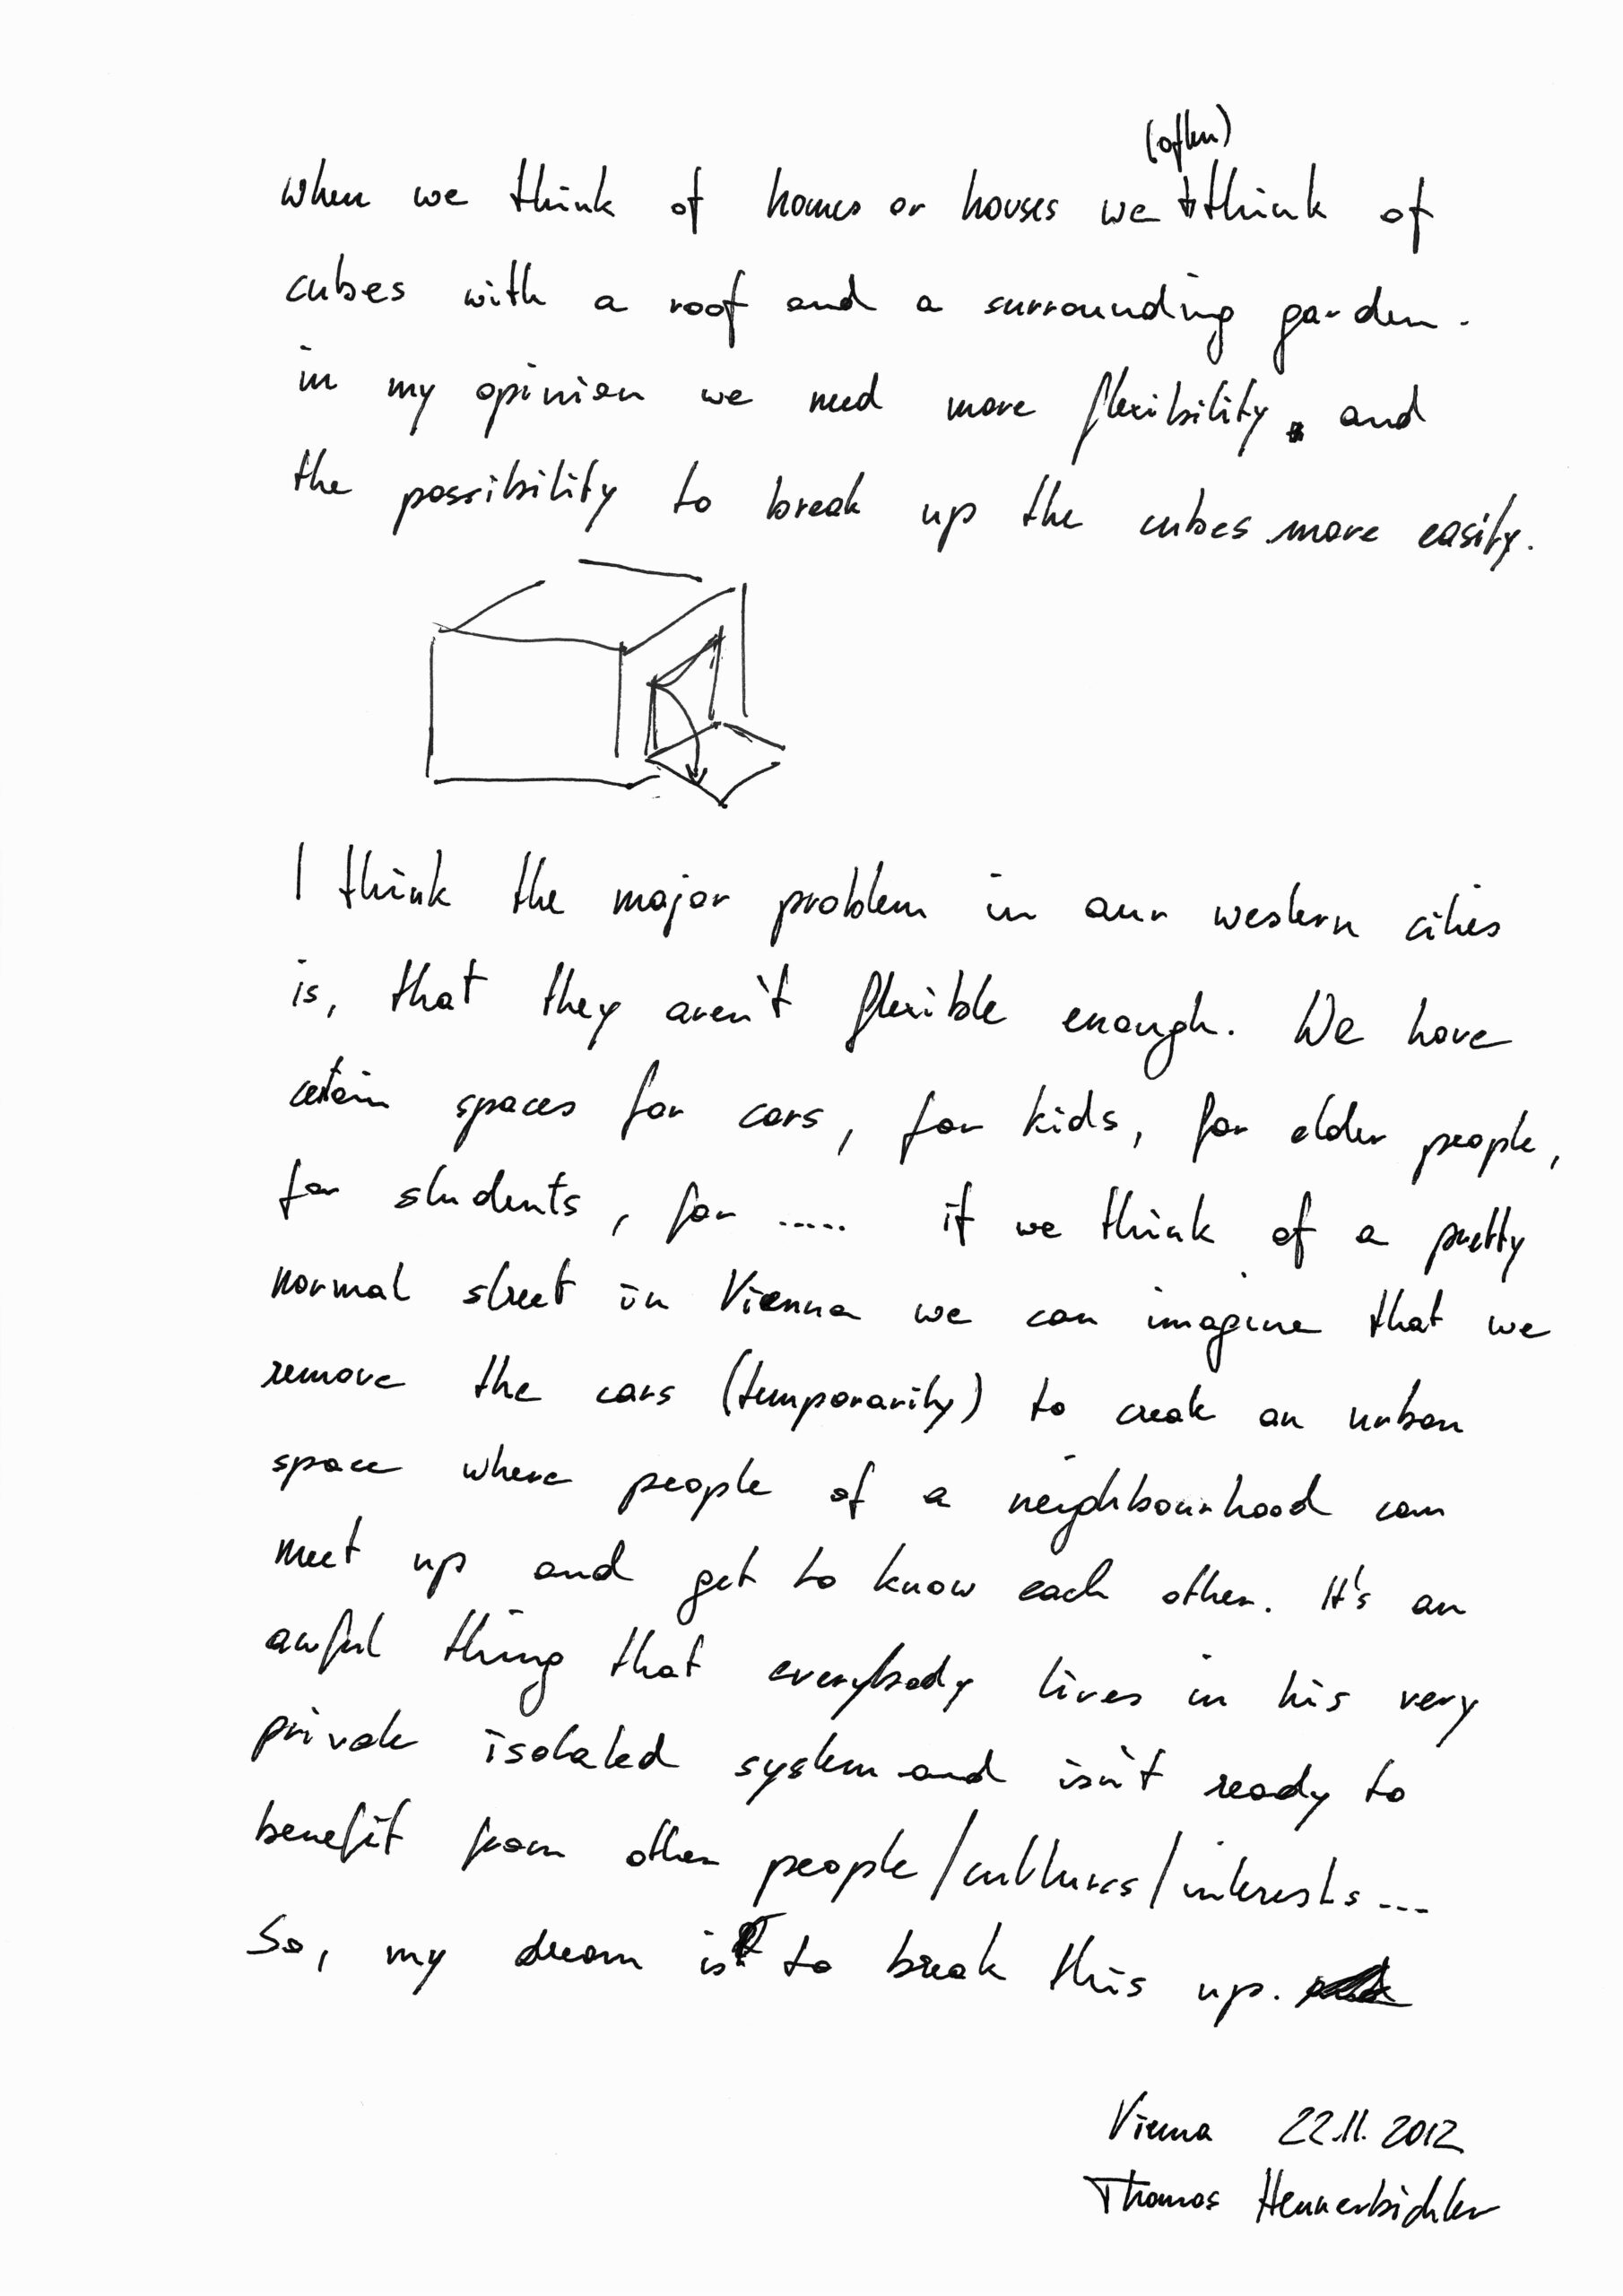 (often)
when we think of homes or houses we think of
cubes with a roof and a surrounding garden.
in my opinion we need more flexibility and
the possibility to break up the cubes more easily.
I think the major problem in our western cities
is, that they aren't flexible enough. We have
certain spaces for cars, for kids, for older people,
for students, for ..... if we think of a pretty
normal street in Vienna we can imagine that we
remove the cars (temporarily) to create an urban
space where people of a neighbourhood can
meet up and get to know each other. It's an
awful thing that everybody lives in his very
private isolated system and isn't ready to
benefit from other people/cultures/interests...
So, my dream is to break this up.
Vienna 22.11.2012
Thomas Hennerbichler